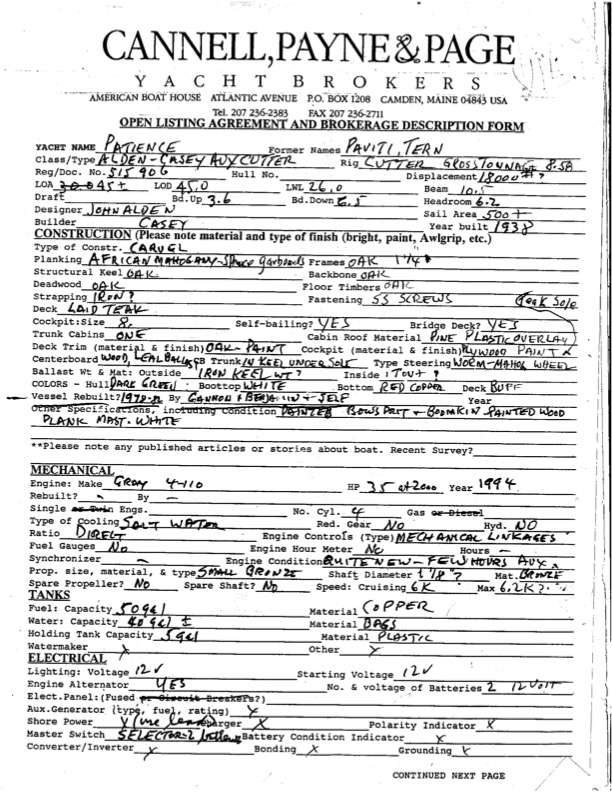 CANNELL, PAYNE & PAGE
YACHT BROKERS
AMERICAN BOAT HOUSE ATLANTIC AVENUE P.O. BOX 1208 CAMDEN, MAINE 04843 USA
Tel. 207 236-2383 FAX 207 236-2711
OPEN LISTING AGREEMENT AND BROKERAGE DESCRIPTION FORM
YACHT NAME PATIENCE Former Names PAVITI, TERN
Class/Type ALDEN-CASEY AUX CUTTER Rig CUTTER GROSS TONNAGE 8.58
Reg/Doc. No. 515 906 Hull No. Displacement 18000 #?
LOA 45± LOD 45.0 LWL 26.0 Beam 10.5
Draft Bd.Up 3.6 Bd.Down 6.5 Headroom 6.2
Designer JOHN ALDEN Sail Area 500+
Builder CASEY Year built 1938
CONSTRUCTION (Please note material and type of finish (bright, paint, Awlgrip, etc.)
Type of Constr. CARVEL
Planking AFRICAN MAHOGANY - garboards Frames OAK 1 1/4"
Structural Keel OAK Backbone OAK
Deadwood OAK Floor Timbers OAK
Strapping IRON? Fastening SS SCREWS
Deck LAID TEAK (Teak Sole
Cockpit:Size 8, Self-bailing? YES Bridge Deck? YES
Trunk Cabins ONE Cabin Roof Material PINE PLASTIC OVERLAY
Deck Trim (material & finish) OAK - PAINT Cockpit (material & finish) PLYWOOD PAINT
Centerboard WOOD, LEAD BALLAST CB Trunk IN KEEL UNDER SOLE Type Steering WORM-MAHOG WHEEL
Ballast Wt & Mat: Outside IRON KEEL WT? Inside 1 TON+ ?
COLORS - Hull DARK GREEN Boottop WHITE Bottom RED COPPER Deck BUFF
Vessel Rebuilt? By GANNON & BENJAMIN + SELF Year
Other Specifications, including Condition PAINTED BOWSPRIT + BOOMKIN PAINTED WOOD
PLANK MAST. WHITE
**Please note any published articles or stories about boat. Recent Survey?
MECHANICAL
Engine: Make GRAY 4-110 HP 35 at 2000 Year 1994
Rebuilt? - By -
Single or Twin Engs. No. Cyl. 4 Gas or Diesel
Type of Cooling SALT WATER Red. Gear NO Hyd. NO
Ratio DIRECT Engine Controls (Type) MECHANICAL LINKAGES
Fuel Gauges NO Engine Hour Meter NO Hours -
Synchronizer - Engine Condition QUITE NEW - FEW HOURS AUX
Prop. size, material, & type SMALL BRONZE Shaft Diameter 1 1/8"? Mat. BRONZE
Spare Propeller? NO Spare Shaft? NO Speed: Cruising 6K Max 6.2K?
TANKS
Fuel: Capacity 50 gal Material COPPER
Water: Capacity 40 gal ± Material BAGS
Holding Tank Capacity 5 gal Material PLASTIC
Watermaker X Other X
ELECTRICAL
Lighting: Voltage 12V Starting Voltage 12V
Engine Alternator YES No. & voltage of Batteries 2 12 VOLT
Elect.Panel:(Fused or Circuit Breakers?)
Aux.Generator (type, fuel, rating) X
Shore Power Charger X Polarity Indicator X
Master Switch SELECTOR-2 Battery Condition Indicator X
Converter/Inverter X Bonding X Grounding X
CONTINUED NEXT PAGE